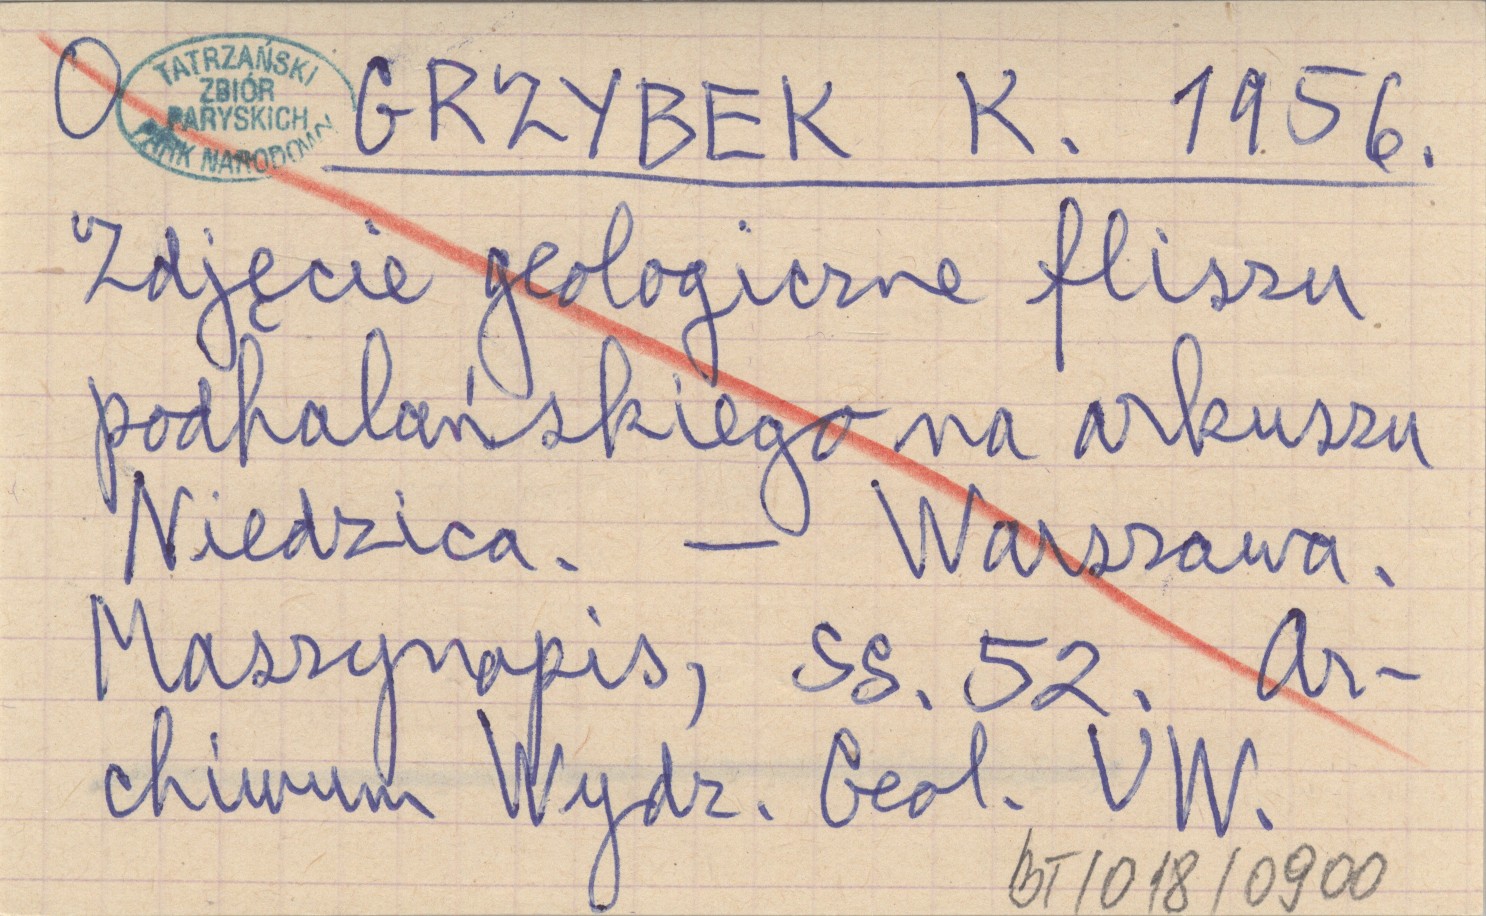 O GRZYBEK K. 1956.
TATRZAŃSKI
ZBIÓR
PARYSKICH
PARK NARODOWY
Zdjęcie geologiczne fliszu
podhalańskiego na arkuszu
Niedzica. — Warszawa.
Maszynopis, ss. 52. Ar-
chiwum Wydz. Geol. UW.
BT/018/0900